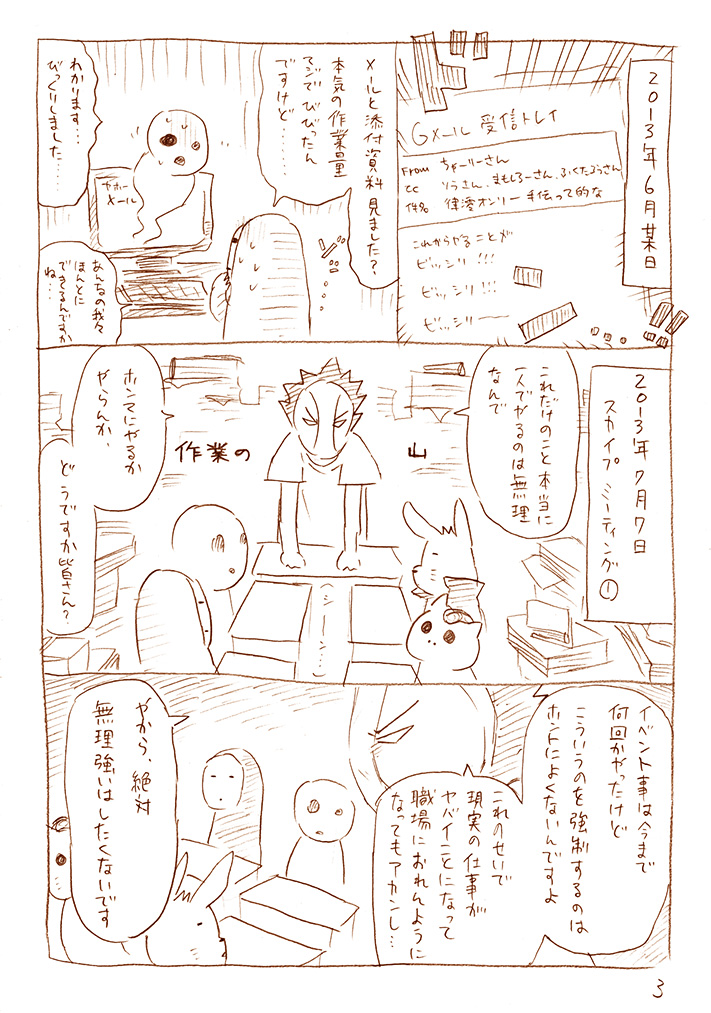 2013年6月某日
Gメール 受信トレイ
From ちゃーりーさん
cc りうさん、まもしろーさん、ふくたろうさん
件名 律澪オンリー手伝って的な
これからやることが
ビッシリ!!!
ビッシリ!!!
ビッシリ〜
メールと添付資料見ました?
本気の作業量
マジでびびったん
ですけど……
わかります…
びっくりしました……
ヤホー
メール
あんなの我々
ほんとに
できるんですか
ね…
2013年7月7日
スカイプ ミーティング①
これだけのこと本当に
一人でやるのは無理
なんで
作業の山
ホンマにやるか
やらんか、
どうですか皆さん?
(シーーン…)
イベント事は今まで
何回かやったけど
こういうのを強制するのは
ホントによくないんですよ
これのせいで
現実の仕事が
ヤバイことになって
職場におれんように
なってもアカンし…
やから、絶対
無理強いはしたくないです
3